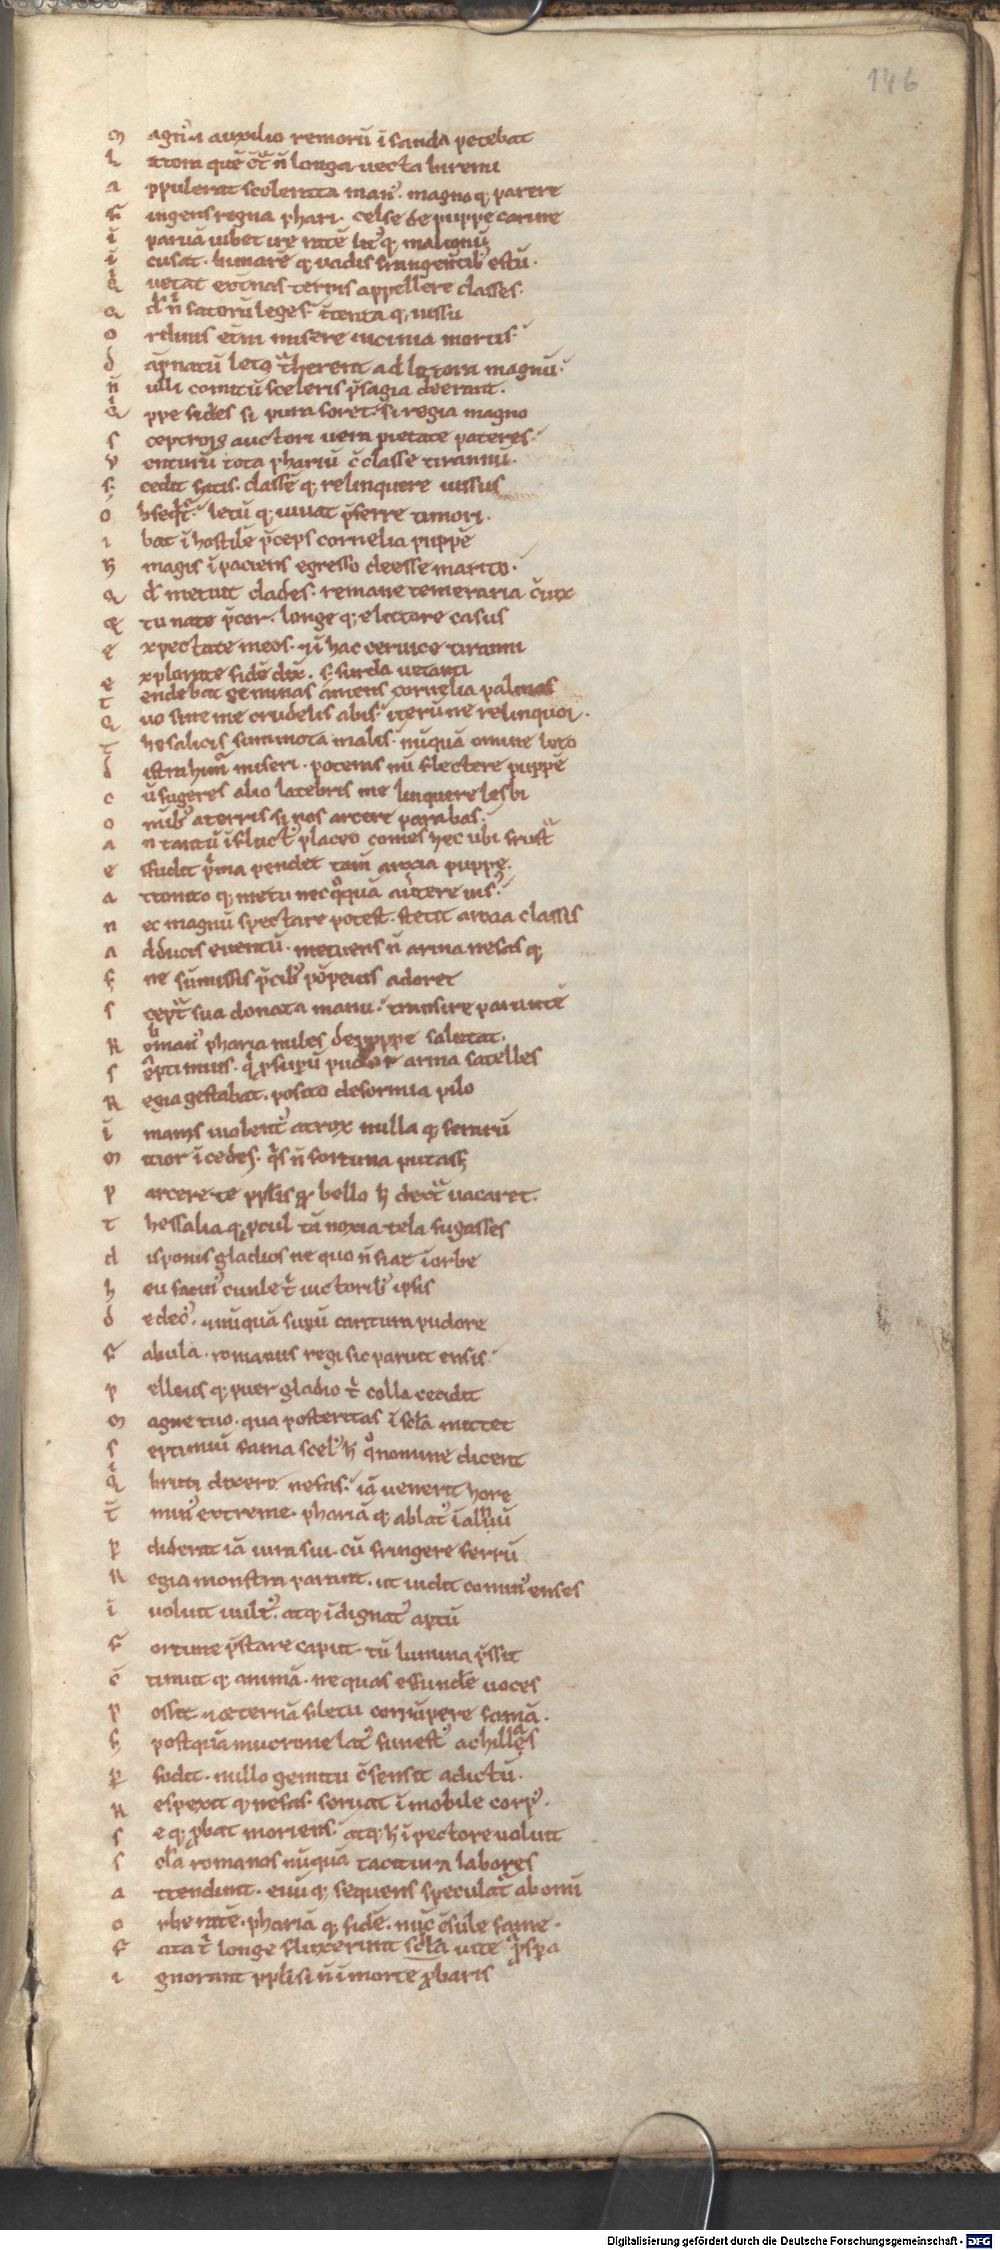 146
M agni auxilio remorū ī sanda petebat
L ittora quē ct̄ᵃ n̄ longa uecta biremi
a ppulerat scelerata man᾽. magnoq; patere
f ingens regna phari. celse de puppe carine
i paruā iubet ire ratē lit᾽q; malignū
i cusat. bimarē q; uadis frangentib᾽ estū.
q̇ uetat ext̄nas terris appellere classes.
q d᾽ n̄ fatorū leges. ītentaq; iussu
o rdinis et̄ni misere uicinia mortis
d āpnatū leto t̄herent ad littora magnū.
n̄ ulli comitū sceleris p̄sagia deerant.
q̇ ppe fides si pura foret. si regia magno
s ceptroꝝ auctori uera pietate pateret.
v enturū tota phariū c̄ classe tirannū.
s; cedit fatis. classē q; relinquere iussus
o bseq̇t᾽. letū q; iuuat p̄ferre timori.
i bat ī hostilē p̄ceps cornelia puppē
h magis īpaciens egresso deesse marito.
q d᾽ metuit clades. remane temeraria c̄iux
& tu nate p̄cor. longe q; e littore casus
e xpectate meos. & ī hac ceruice tiranni
e xplorate fidē dix̄. s; surda uetanti
t endebat geminas am̄ens cornelia palmas
q uo sine me crudelis abis. iterū ne relinquor.
t hesalicis summota malis. nūquā omine leto
d istrahim᾽ miseri. poteras nū flectere puppē
c ū fugeres alio latebris me linquere lesbi
o mnib᾽ a terris si nos arcere parabas.
a n tantū ī fluct᾽ placeo comes hec ubi frustᵃ
e ffudit p̄ma pendet tam̄ anxia puppe.
a ttonito q; metu nec q̊quā au̓tere uis᾽
n ec magnū spectare potest. stetit anxia classis
a dducis euentū. metuens n̄ arma nefas q;
s; ne sūmissis p̄cib᾽ pōpeius adoret
s ceptᵃ sua donata manu. transire parantē
R oman᾽ pharia miles de puppe salutat.
s eptimius. q̇ p̱ supū pudor arma satelles
R egia gestabat. posito deformia pilo
i manis uiolent᾽ atrox nulla q; ferarū
m itior ī cedes. q̇s n̄ fortuna putass;
p arcere te pplis qđ bello h̄ dextᵃ uacaret.
t hessalia q; pcul tā noxia tela fugasses
d isponis gladios ne quo n̄ fiat ī orbe
h eu facin᾽ ciuile t᾽ uictorib᾽ ipsis
d edec᾽. & nūquā supū caritura pudore
f abula. romanus regi sic paruit ensis.
p elleus q; puer gladio t᾽ colla cecidit
m agne tuo. qua posteritas ī scl̄a mittet
s eptimiū fama scel᾽ h̄ q̊ nomine dicent
q̇ bruti dixere nefas. iā uenerat hore
t̄ min᾽ extreme. phariā q; ablat᾽ ī alnū
p̱ diderat iā iura sui. cū stringere ferrū
R egia monstra parant. ut uidit comin᾽ enses
i uoluit uult᾽. atq; ī dignat᾽ ap̱tū
f ortune p̄stare caput. tū lumina p̄ssit
c̄ tinuit q; animā. ne quas effundē uoces
p osset & eternā fletu corrūpere famā.
s; postquā mucrone lat᾽ funest᾽ achillas
p̱ fodit. nullo gemitu c̄sensit ad ictū.
R espexit q; nefas. seruat īmobile corp᾽.
s e q; p̱bat moriens. atq; h̄ ī pectore uoluit
s cl̄a romanos nūquā tacitura labores
a ttendunt. euū q; sequens speculat᾽ ab omī
o rbe ratē. phariā q; fidē. nūc c̄sule fame.
f ata t᾽ longe fluxerunt scl̄a uite p̱spa
i gnorant ppl̄i si n̄ ī morte p̱baris
Digitalisierung gefördert durch die Deutsche Forschungsgemeinschaft - DFG